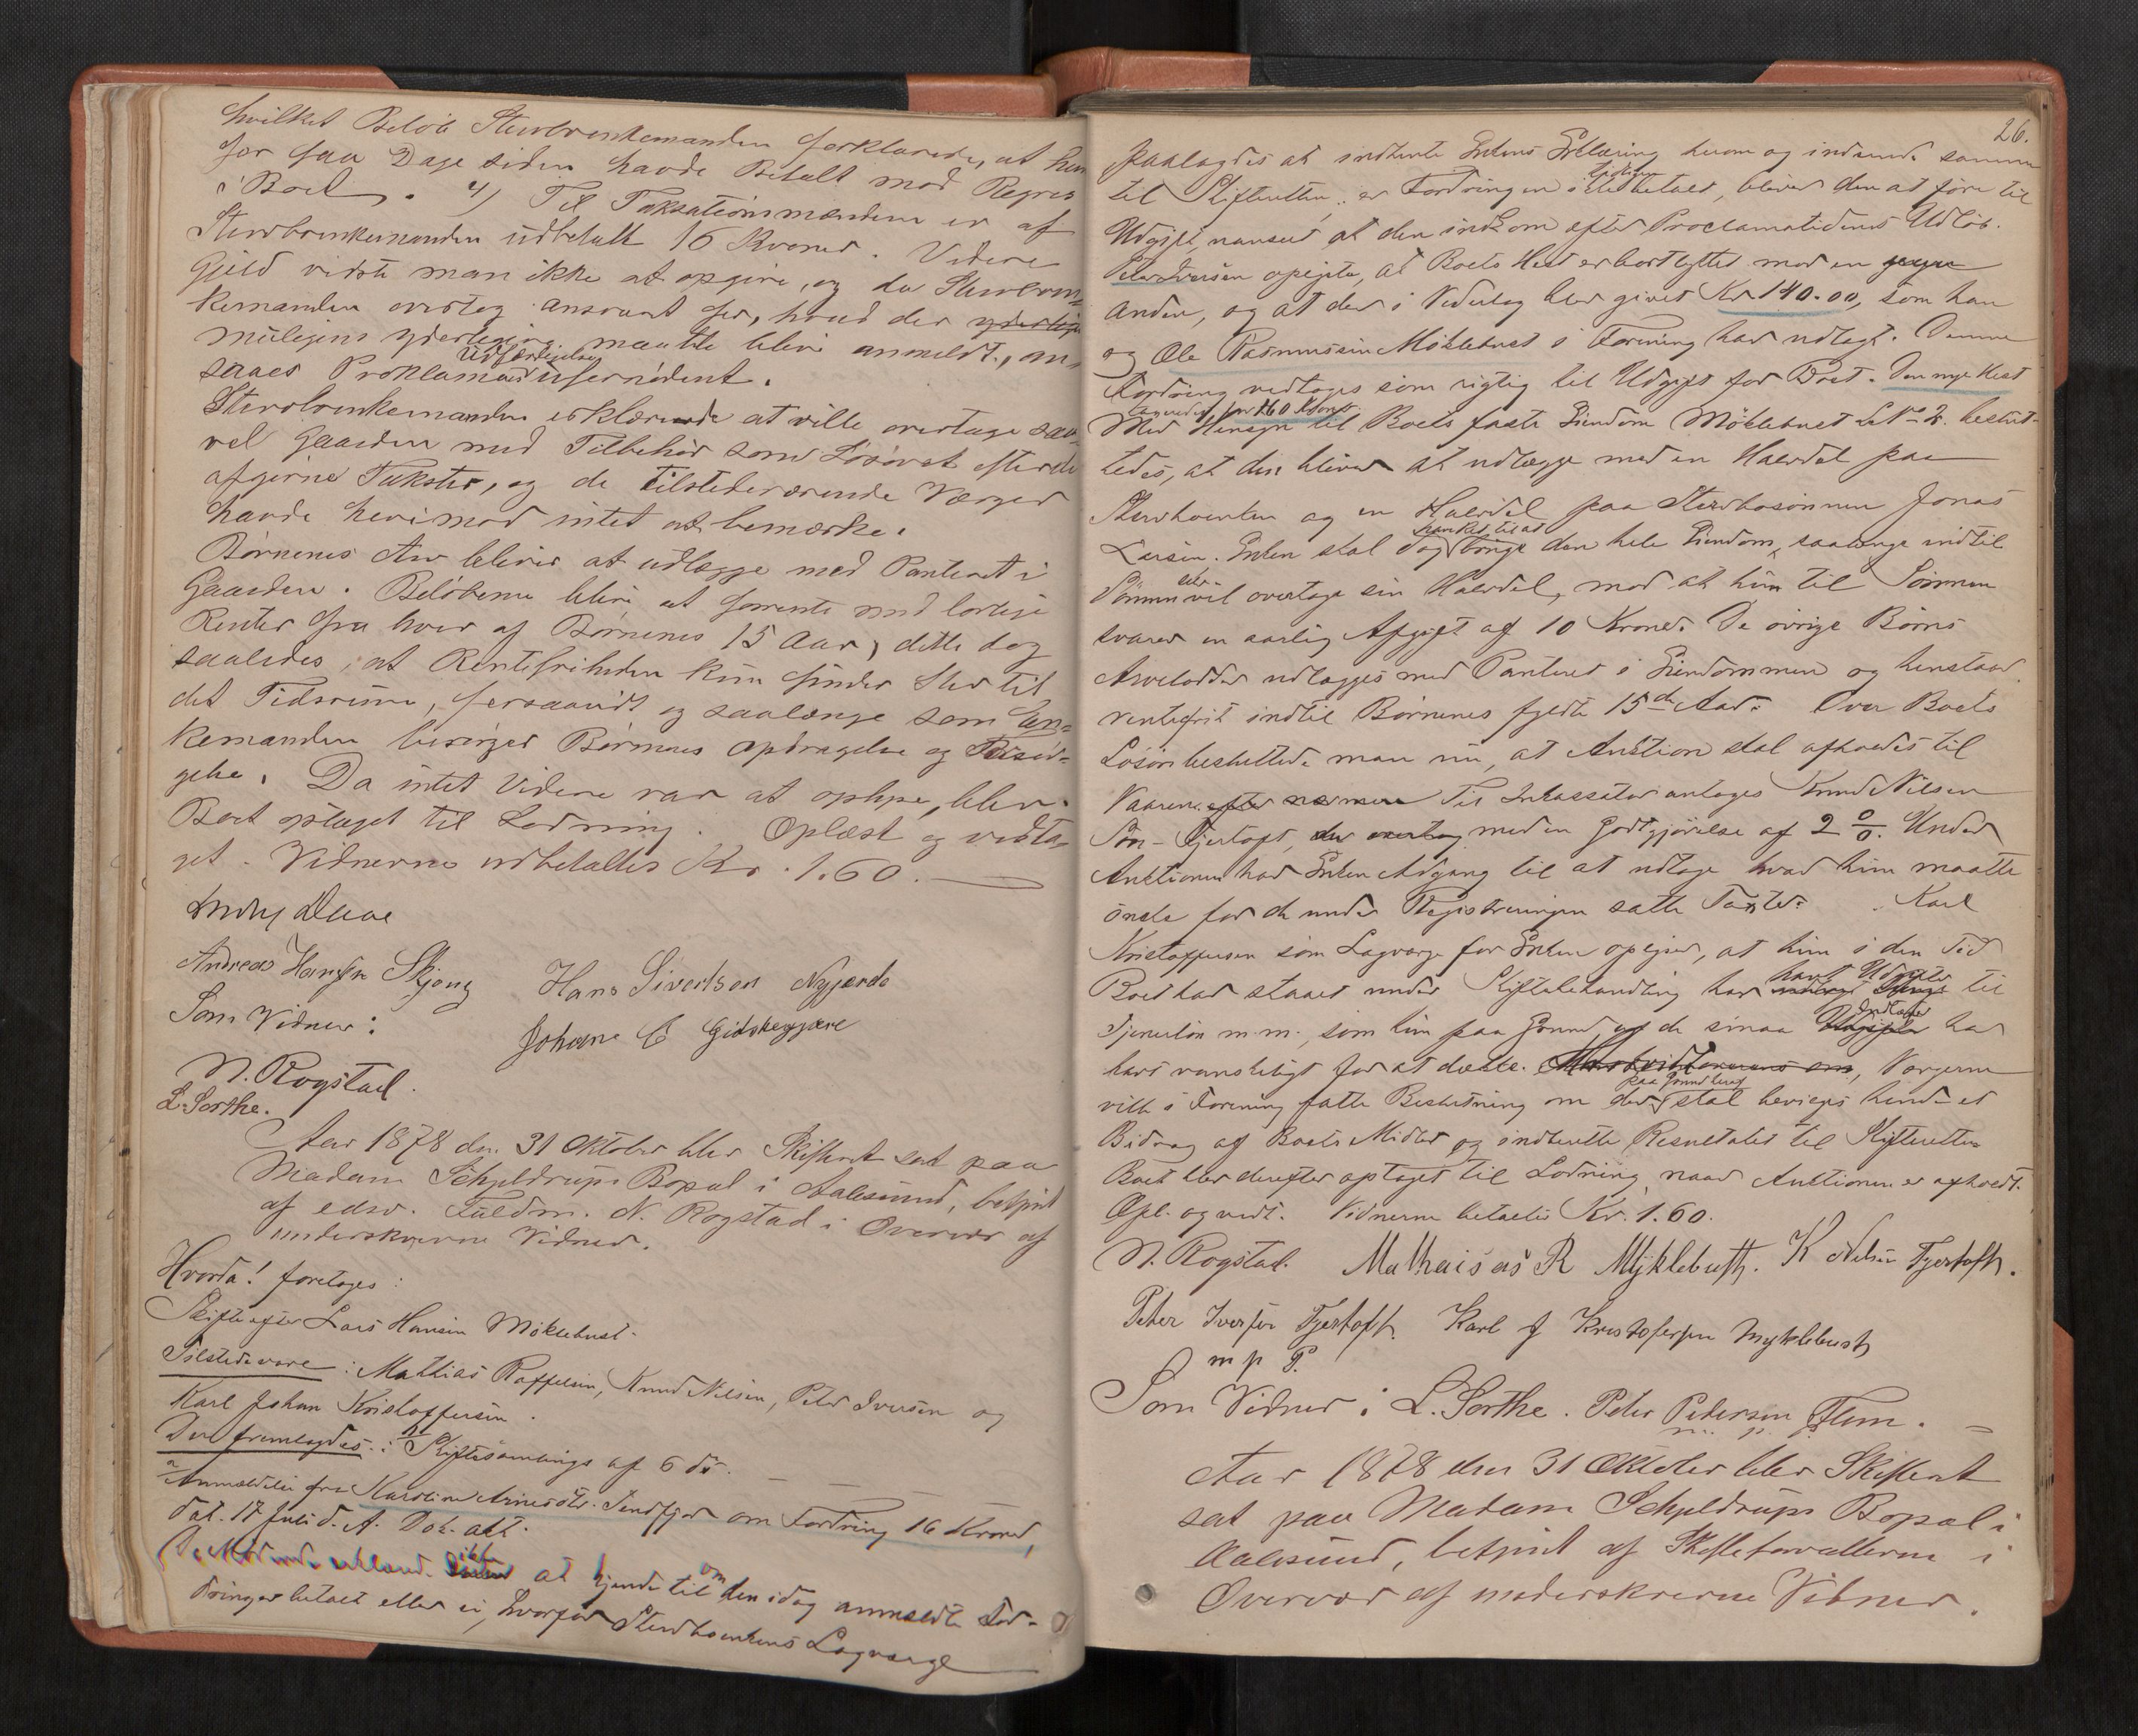 hvilket Beløb Stervbenkemanden forklarede, at han
for faa Dage siden havde Betalt mod Regres
i Boet. 4) Til Taksationsmændene er af
Stervbenkemanden udbetalt 16 Kroner. Videre
Gjeld vidste man ikke at opgive, og da Stervben-
kemanden overtog ansvaret for, hvad der yderlige
muligens yderligere maatte blive anmeldt, an-
saaes Proklamas Udfærdigelse ufornødent.
Stervbenkemanden erklærede at ville overtage saa-
vel Gaarden med Tilbehør som Løsøret efter de
afgivne Takster, og de tilstedeværende Værger
havde herimod intet at bemærke.
Børnenes Arv bliver at udlægge med Panteret i
Gaarden. Beløbene blive at forrente med lovlige
Renter fra hver af Børnenes 15 Aar, dette dog
saaledes, at Rentefriheden kun finder Sted til
det Tidsrum, forsaavidt og saalænge som En-
kemanden besørger Børnenes Opdragelse og Forsør-
gelse. Da intet Videre var at oplyse, blev
Boet optaget til Lodning. Oplæst og vedta-
get. Vidnerne udbetaltes Kr. 1.60.
Andreas Hansen Skjong Hans Sivertsen Nygjerde
Som Vidner: Johane E Gidskegjære
N. Rogstad.
L. Sorthe.
Aar 1878 den 31 Oktober blev Skifteret sat paa
Madam Schjeldrups Bopæl i Aalesund, betjent
af edsv. Fuldm. N. Rogstad i Overvær af
underskrevne Vidner.
Hvorda! foretoges:
Skifte efter Lars Hansen Møklebust.
Tilstede vare: Mathias Raffelsen, Knud Nilsen, Peter Iversen og
Karl Johan Kristoffersen.
Der fremlagdes: 1) Skiftesamlings af 6 ds.
2) Anmeldelse fra Karoline Arnesdtr. om Fordring 16 Kroner,
dat. 17 Juli d. A. Dok. att.
De Mødende erklærede ikke at kjende til om den idag anmeldte For-
dring er betalt eller ei, hvorfor Stervboenkens Lagværge
26.
paalagdes at indhente Enkens Erklæring herom og indsende samme
til Skifteretten; er Fordringen ikke betalt, bliver den at føre til
Udgift, uanseet at den indkom efter Proclamatidens Udløb.
Peter Iversen oplyste, at Boets Hest er bortbyttet mod en
anden, og at der i Vederlag blev givet Kr 140.00, som han
og Ole Rasmussen Møklebust i Forening har udlagt. Denne
Fordring vedtoges som rigtig til Udgift for Boet. Den nye Hest
for 160 Kroner
Med Hensyn til Boets faste Eiendom Møklebust L No 2. beslut-
tedes, at den bliver at udlægge med en Halvdel paa
Stervboenken og en Halvdel paa Stervbosønnen Jonas
Larsen. Enken skal dog have Ret til at bruge den hele Eiendom, saalænge indtil
Sønnen selv vil overtage sin Halvdel, mod at hun til Sønnen
svarer en aarlig Afgift af 10 Kroner. De øvrige Børns
Arvelodder udlægges med Panteret i Eiendommen og henstaar
rentefrit indtil Børnenes fyldte 15de Aar. Over Boets
Løsøre besluttede man nu, at Auktion skal afholdes til
Vaaren. Til Inkassator antoges Knud Nilsen
Søn-Fjertoft, med en Godtgjørelse af 2 %. Under
Auktionen har Enken Adgang til at udtage hvad hun maatte
ønske for de under Registreringen satte Taxter. Karl
Kristoffersen som Lagværge for Enken oplyser, at hun i den Tid
Boet har staaet under Skiftebehandling har havt Udgifter til
Tjenerløn m.m., som hun paa Grund af de smaa Indtægter har
havt vanskeligt for at dække. Værgerne
ville i Forening fatte Beslutning om der paa Grund heraf skal bevilges hende et
Bidrag af Boets Midler og indberette Resultatet til Skifteretten.
Boet blev derefter optaget til Lodning naar Auktionen er afholdt.
Opl. og vedt. Vidnerne betaltes Kr. 1.60.
N. Rogstad. Mathaisas R Myklebust. K Nilsen Fjertoft.
Peter Iversen Fjertoft. Karl J Kristofersen Myklebust
m p P.
Som Vidner: L. Sorthe. Peter Pedersen Flem.
m. p. P.
Aar 1878 den 31 Oktober blev Skifteret
sat paa Madam Schjeldrups Bopæl i
Aalesund, betjent af Skifteforvalteren i
Overvær af underskrevne Vidner.